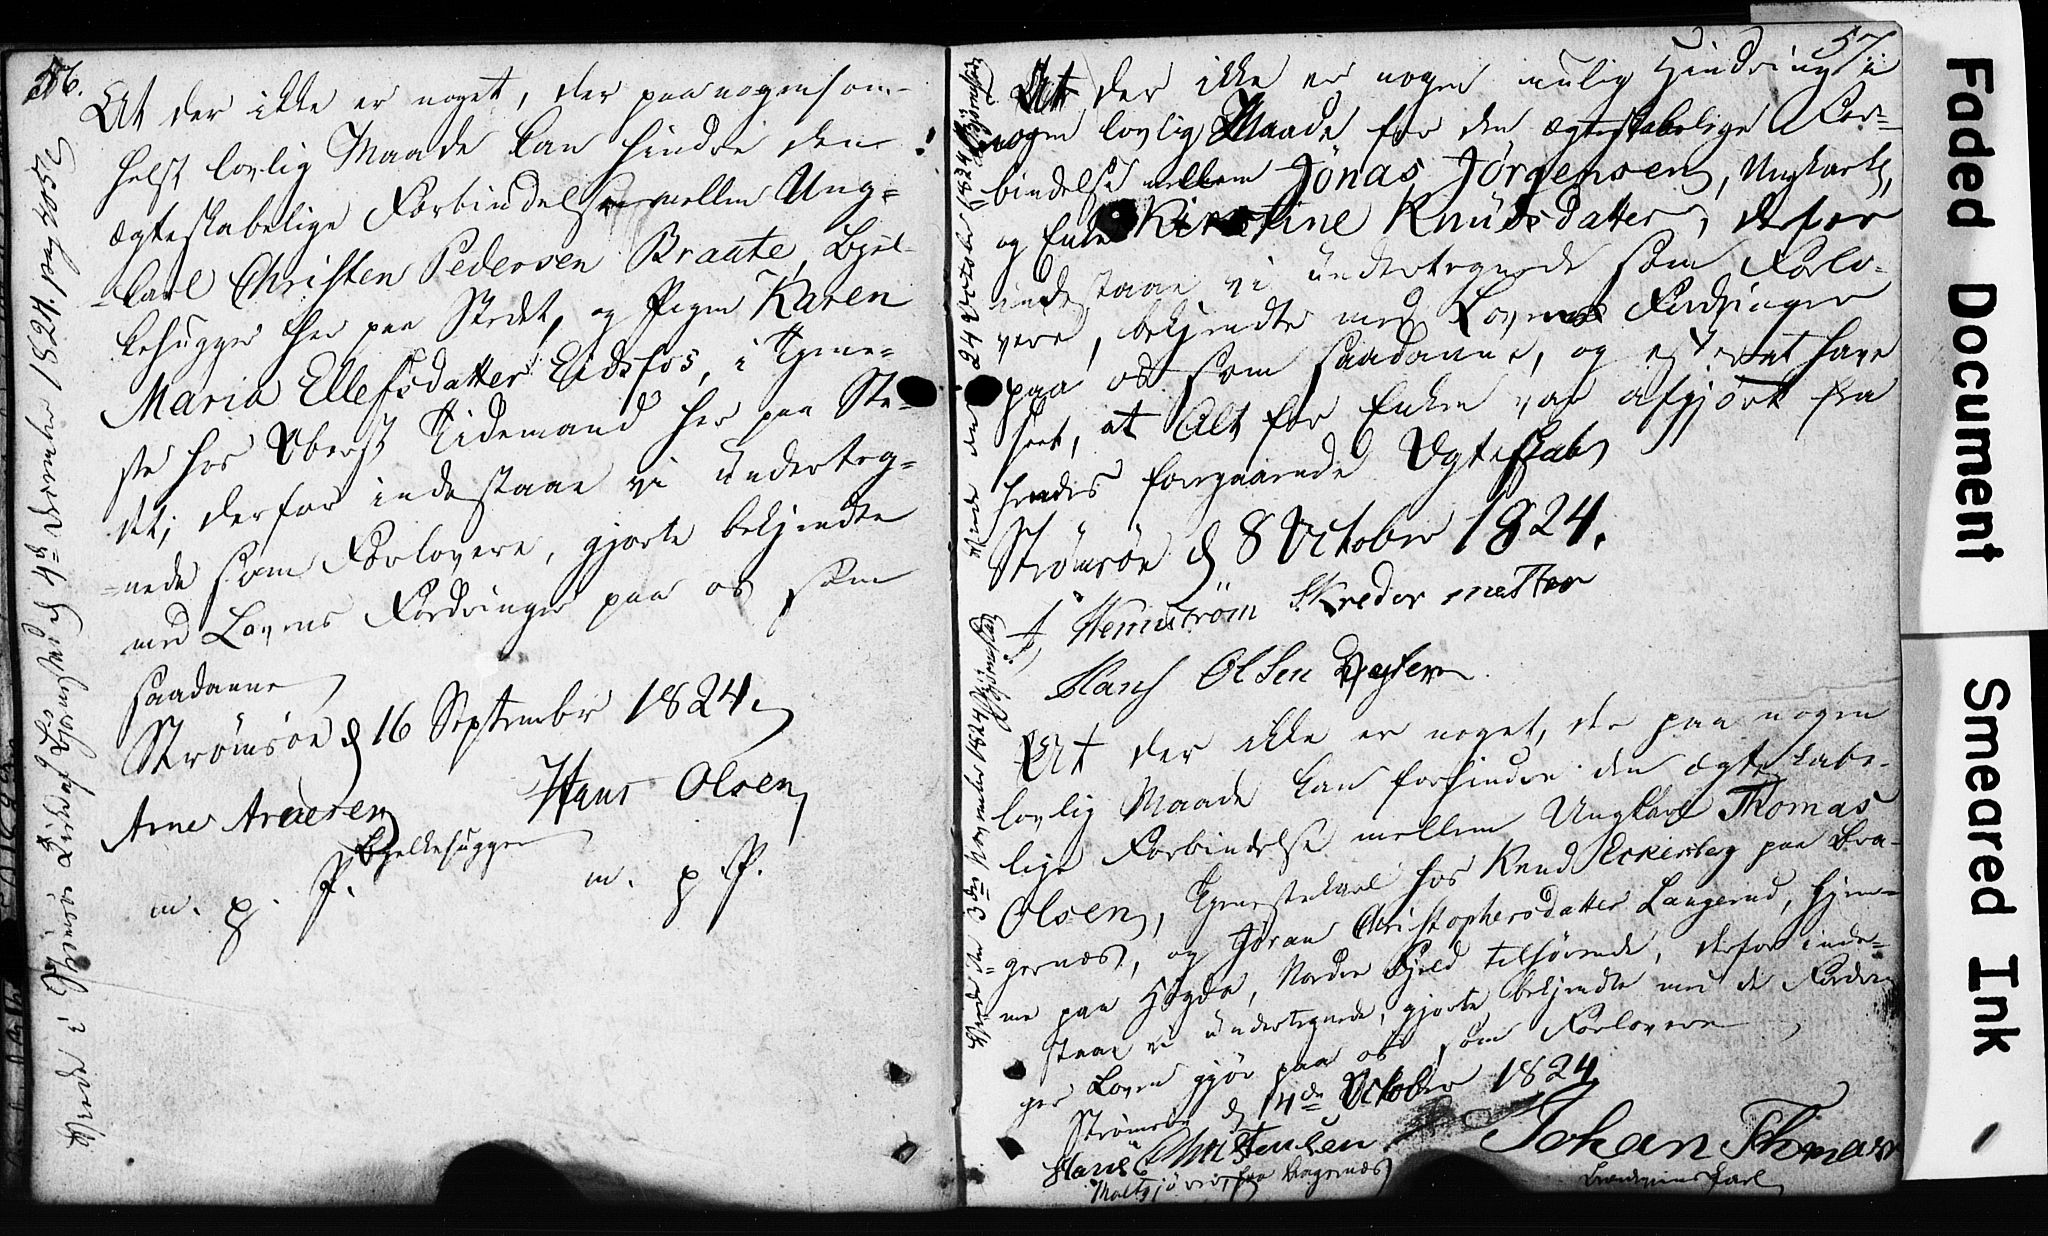 56.
At der ikke er noget, der paa nogensom-
helst lovlig Maade kan hindre den
ægteskabelige Forbindelse mellem Ung-
karl Christen Pedersen Braate, Bjel-
kehugger her paa Stedet, og Pigen Karen
Maria Ellefsdatter Eidsfos, i Tjene-
ste hos Oberst Tidemand her paa Ste-
det; derfor indestaae vi underteg-
nede som Forlovere, gjorte bekjendte
med Lovens Fordringer paa os som
saadanne
Strømsøe d 16 September 1824.
Arne Arnesen
Hans Olsen
Bjelkehugger
m. p. P.
m. p. P.
Viede i Strømsøe Kirke d 4de December 1824. pag 405
57.
At der ikke er nogen mulig Hindring i
nogen lovlig Maade for den ægteskabelige For-
bindelse mellem Jönas Jörgensen, Ungkarl,
og Enke Kirstine Knudsdatter, derfor
indestaae vi undertegnede som Forlo-
vere, bekjendte med Lovens Fordringer
paa os som saadanne, og at have
seet, at Alt for Enken var afgjört fra
hendes foregaaende Ægteskab
Strömsöe d 8 October 1824.
Skreder mester
Hans Olsen
Viede den 24 October 1824
At der ikke er noget, der paa nogen
lovlig Maade kan forhindre den ægteskabe-
lige Forbindelse mellem Ungkarl Thomas
Olsen, Tjenestekarl hos Knud Eckersberg paa Bra-
gernæs, og Jöran Christophersdatter Langerud, hjem-
me paa Hogda, Nordre Fjeld tilhörende, derfor inde-
staae vi undertegnede, gjorte bekjendte med de Fordrin-
ger Loven gjör paa os som Forlovere
Strömsöe d 14de October 1824
Hans Christensen
Johan Thomas
paa Bragernæs
Viede den 3de November 1824
Faded Document
Smeared Ink